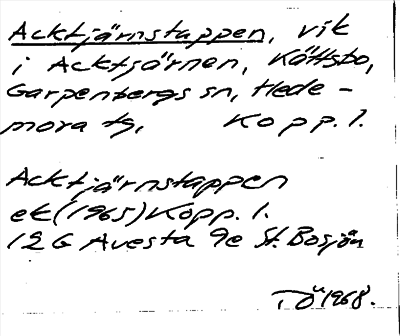 Acktjärnstappen, vik
i Acktjärnen, Kättsbo,
Garpenbergs sn, Hede-
mora tg, Kopp. l.
Acktjärnstappen
ek (1965) Kopp. l.
12G Avesta 9e St. Bosjön
TÖ 1968.